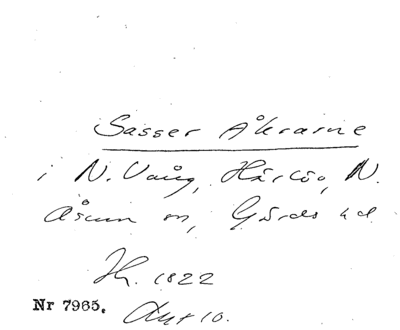 Sasser Åkrarne
i N. Vång, Härlöv, N.
Åsum sn, Gärds hd
Hr. 1822
Nr 7965. Akt 10.